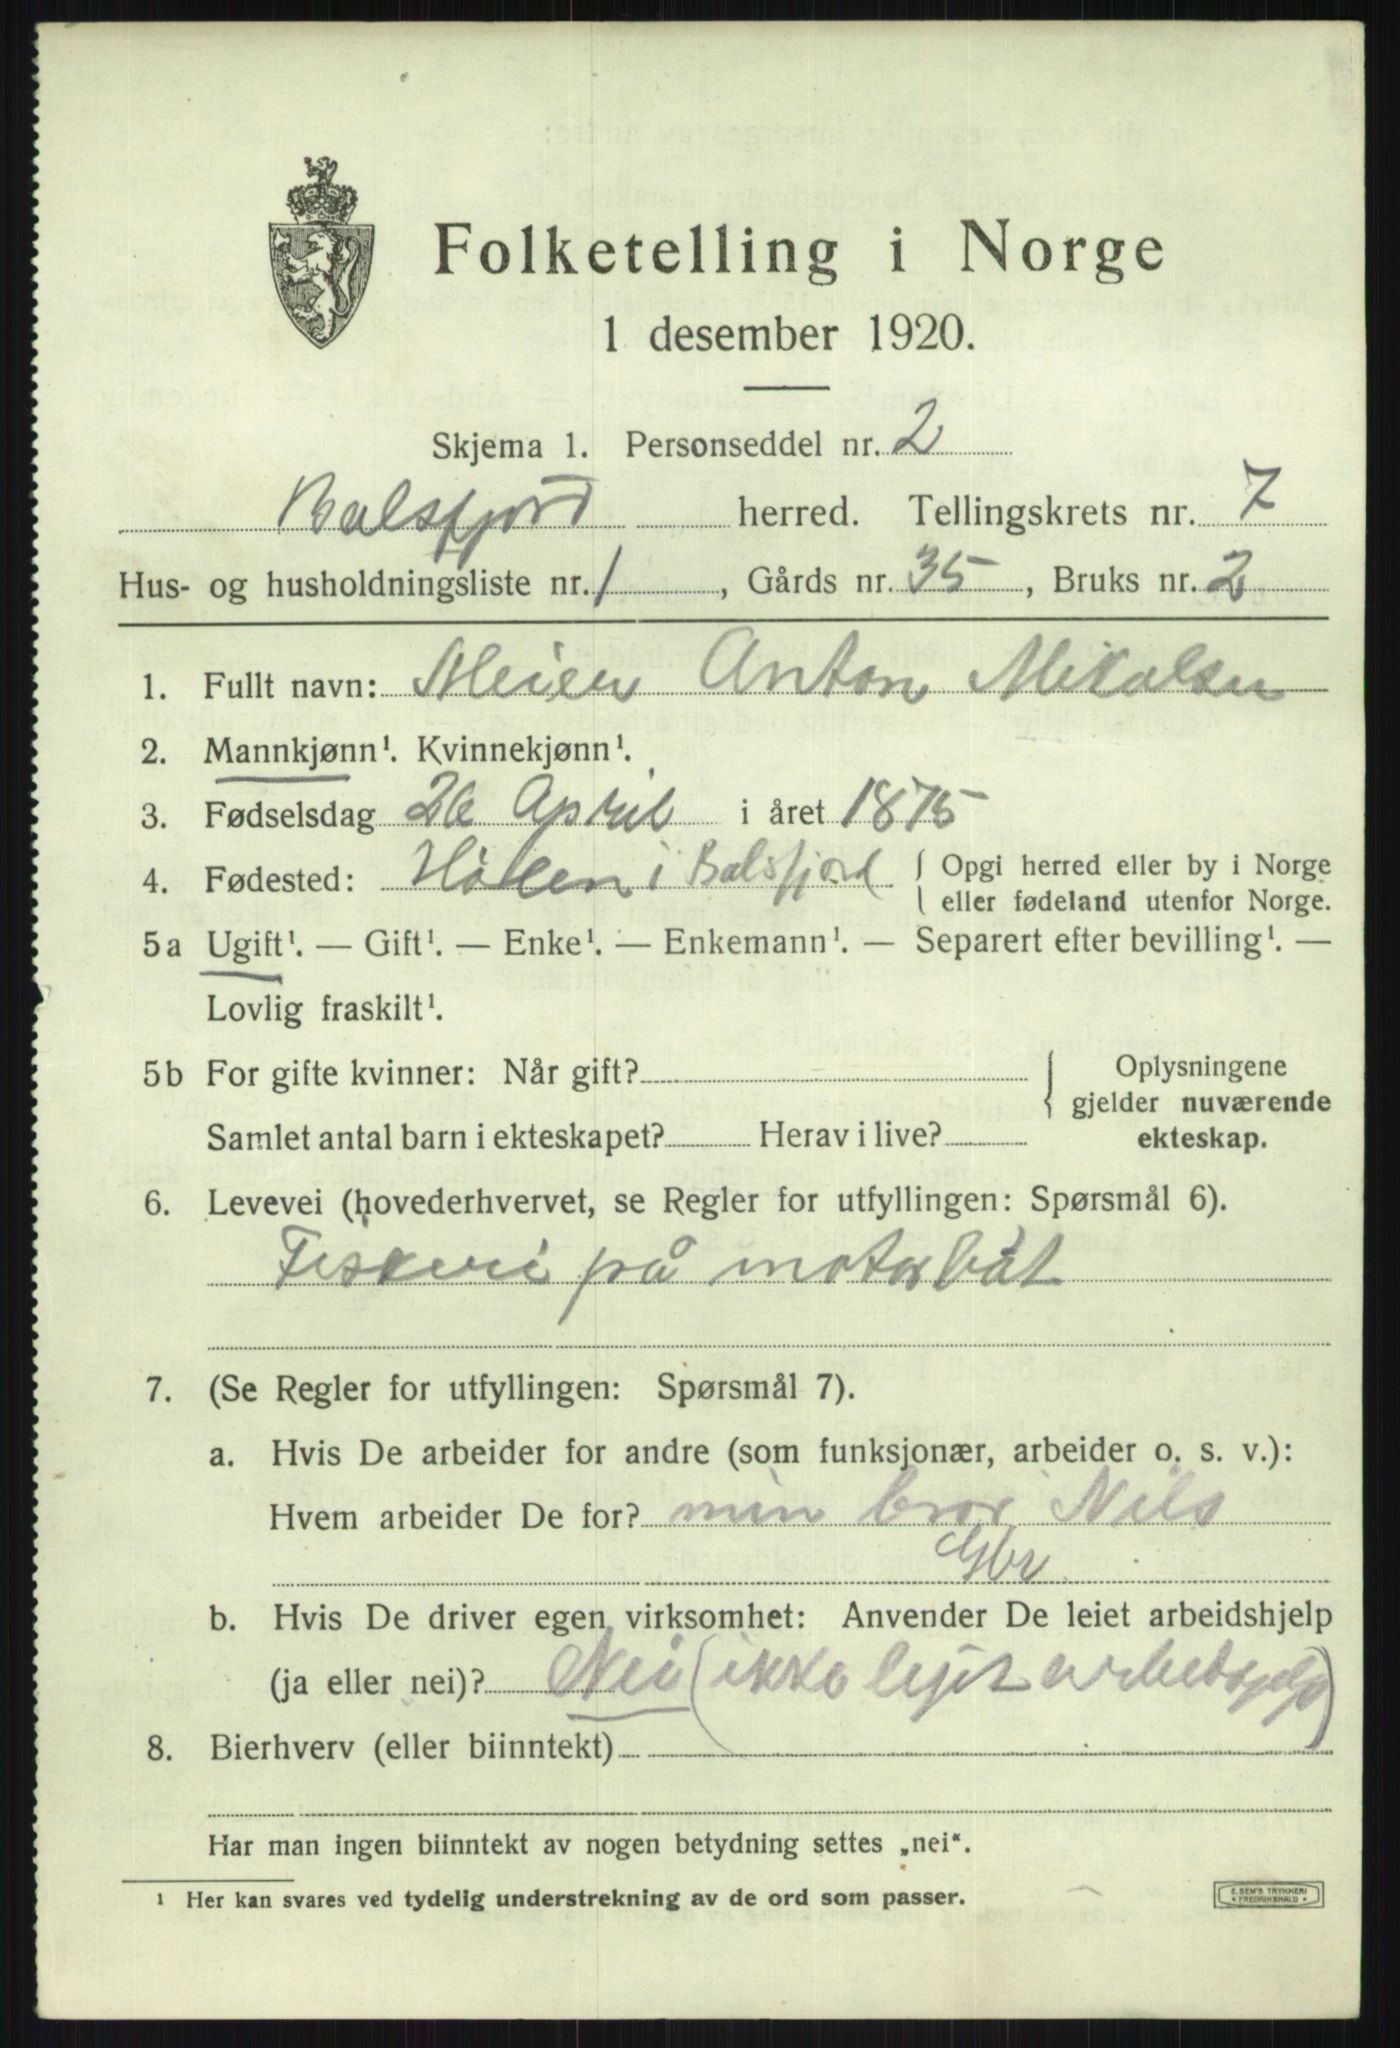 Folketelling i Norge
1 desember 1920.
Skjema 1. Personseddel nr. 2
Balsfjord herred. Tellingskrets nr. 7
Hus- og husholdningsliste nr. 1, Gårds nr. 35, Bruks nr. 2
1. Fullt navn: Meier Anton Mikalsen
2. Mannkjønn¹. Kvinnekjønn¹.
3. Fødselsdag 26 April i året 1875
4. Fødested: i Balsfjord { Opgi herred eller by i Norge
eller fødeland utenfor Norge.
5a Ugift¹. — Gift¹. — Enke¹. — Enkemann¹. — Separert efter bevilling¹. —
Lovlig fraskilt¹.
5b For gifte kvinner: Når gift?
Samlet antal barn i ekteskapet? Herav i live?
{ Oplysningene
gjelder nuværende
ekteskap.
6. Levevei (hovederhvervet, se Regler for utfyllingen: Spørsmål 6).
Fiskeri på motorbåt
7. (Se Regler for utfyllingen: Spørsmål 7).
a. Hvis De arbeider for andre (som funksjonær, arbeider o. s. v.):
Hvem arbeider De for? min bror Nils
Gbr
b. Hvis De driver egen virksomhet: Anvender De leiet arbeidshjelp
(ja eller nei)? Nei (ikke lejet
8. Bierhverv (eller biinntekt)
Har man ingen biinntekt av nogen betydning settes „nei“.
¹ Her kan svares ved tydelig understrekning av de ord som passer.
E. SEM'S TRYKKERI
* FREDRIKSHALD *